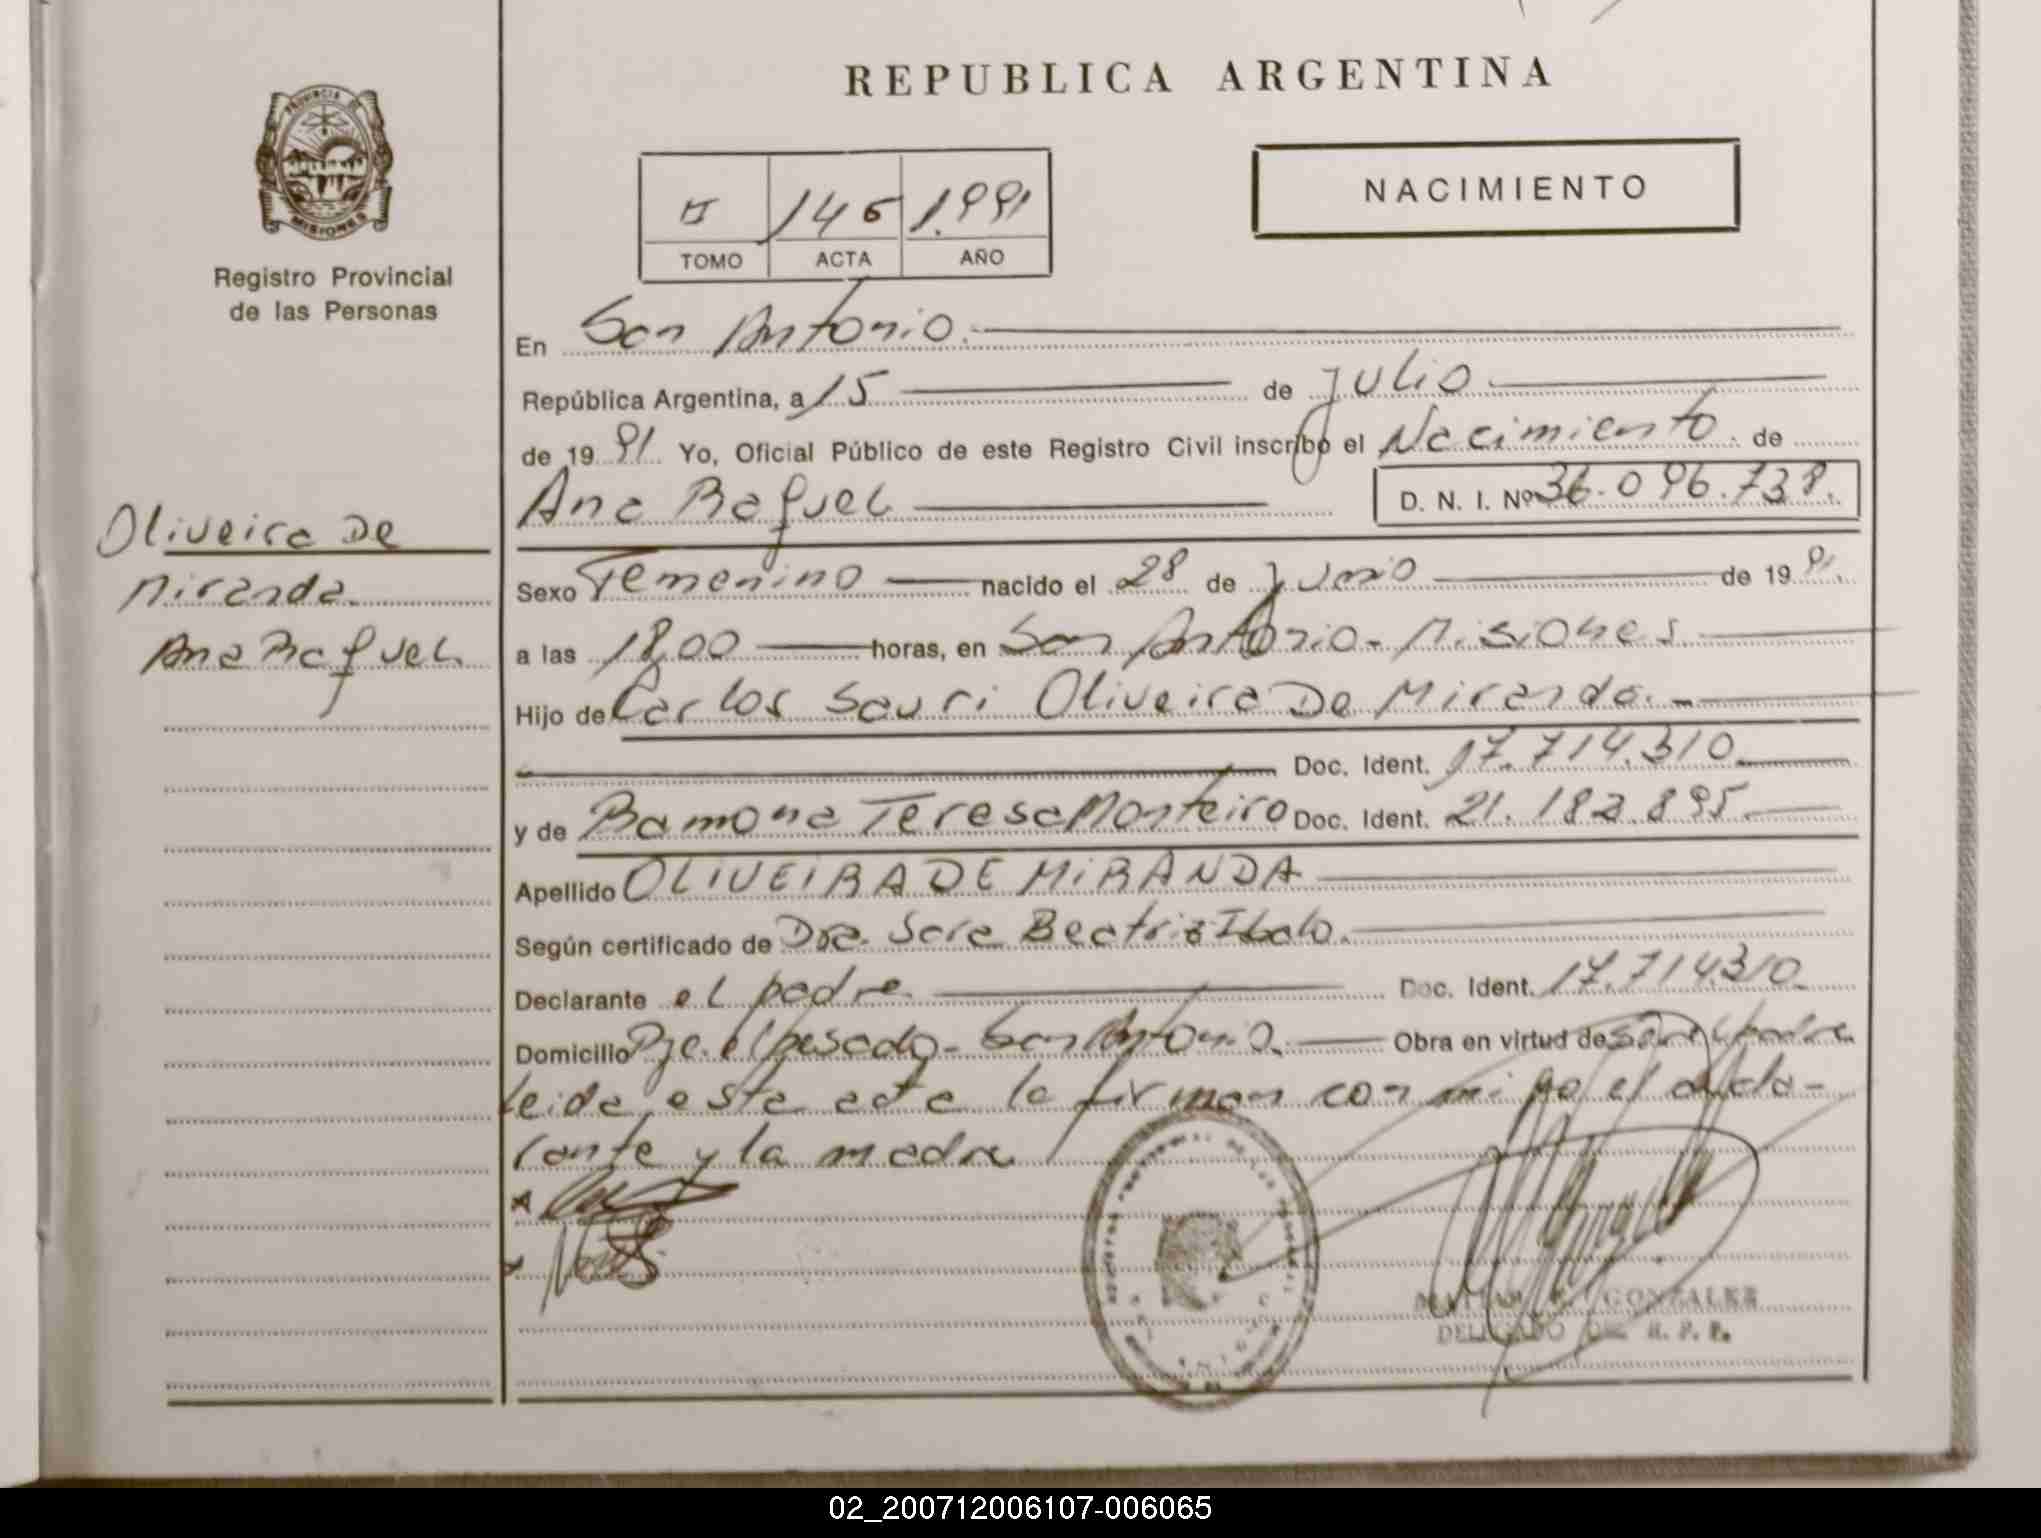 REPUBLICA ARGENTINA
PROVINCIA DE
MISIONES
Registro Provincial
de las Personas
NACIMIENTO
II 145 1.991
TOMO ACTA AÑO
En San Antonio.
República Argentina, a 15 de Julio
de 19 91 Yo, Oficial Público de este Registro Civil inscribo el Nacimiento. de
Ana Raquel D. N. I. Nº 36.096.738.
Oliveira De
Miranda
Ana Raquel
Sexo Femenino nacido el 28 de Junio de 19 91.
a las 18,00 horas, en San Antonio - Misiones
Hijo de Carlos Sauri Oliveira De Miranda. -
Doc. Ident. 17.714.310
y de Ramona Teresa Monteiro Doc. Ident. 21.182.895
Apellido OLIVEIRA DE MIRANDA
Según certificado de Dra. Sara Beatriz Ibalo.
Declarante el padre Doc. Ident. 17.714.310
Domicilio Pje. el pesado - San Antonio. Obra en virtud de ser el padre
leida esta acta la firman con migo el decla-
rante y la madre
GONZALEZ
DELEGADO DEL R. P. P.
02_200712006107-006065